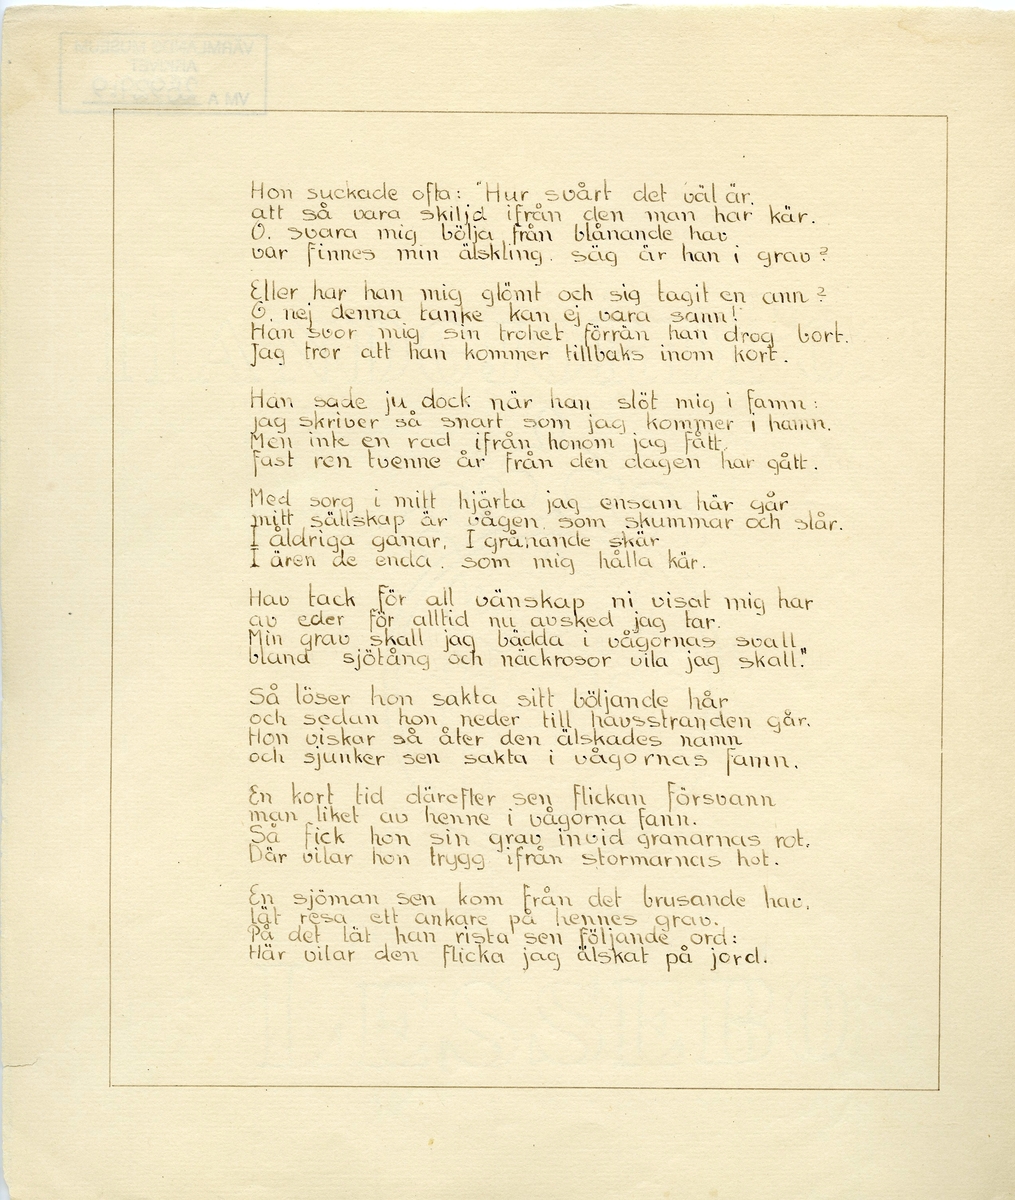 Hon suckade ofta: "Hur svårt det väl är.
att så vara skiljd ifrån den man har kär.
O. svara mig bölja från blånande hav
var finnes min älskling. säg är han i grav?
Eller har han mig glömt och sig tagit en ann?
O, nej denna tanke kan ej vara sann!
Han svor mig sin trohet förrän han drog bort.
Jag tror att han kommer tillbaks inom kort.
Han sade ju dock när han slöt mig i famn:
jag skriver så snart som jag kommer i hamn.
Men inte en rad ifrån honom jag fått,
fast ren tvenne år från den dagen har gått.
Med sorg i mitt hjärta jag ensam här går
mitt sällskap är vågen, som skummar och slår.
I åldriga ganar, I grånande skär
I ären de enda. som mig hålla kär.
Hav tack för all vänskap ni visat mig har
av eder för alltid nu avsked jag tar.
Min grav skall jag bädda i vågornas svall,
bland sjötång och näckrosor vila jag skall."
Så löser hon sakta sitt böljande hår
och sedan hon neder till havsstranden går.
Hon viskar så åter den älskades namn
och sjunker sen sakta i vågornas famn.
En kort tid därefter sen flickan försvann
man liket av henne i vågorna fann.
Så fick hon sin grav invid granarnas rot,
Där vilar hon trygg ifrån stormarnas hot.
En sjöman sen kom från det brusande hav,
lät resa ett ankare på hennes grav.
På det lät han rista sen följande ord:
Här vilar den flicka jag älskat på jord.